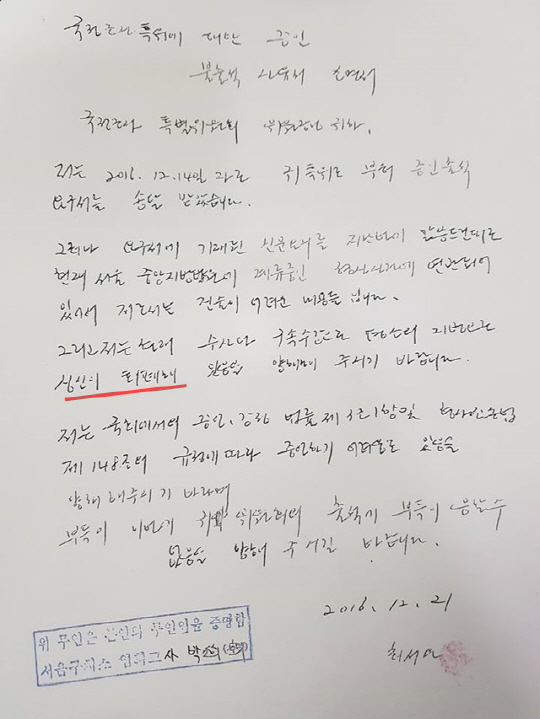 국정조사 특위에 대한 증인
불출석 사유서 소명서
국정조사 특별위원회 위원장님 귀하.
저는 2016. 12.14일 귀 특위로 부터 증인출석
요구서를 송달 받았습니다.
그러나 요구서에 기재된 신문요지를
현재 서울 중앙지방법원에 계류중인 형사사건에 연관되어
있어서 저로서는 진술이 어려운 내용들 입니다.
그리고 저는 현재 수사와 구속수감으로 평소의 지병으로
심신이 회폐해 있음을 양해하여 주시기 바랍니다.
저는 국회에서의 증언, 감정 법률 제3조1항 및 형사소송법
제148조의 규정에 따라 증언하기 어려움으로 있음을
양해해주시기 바라며
부득이 이번에 귀 위원회의 출석에 부득이 응할수
없음을 양해해 주시길 바랍니다.
2016. 12. 21
최서원
위 무인은 본인의 무인임을 증명함
서울구치소 박